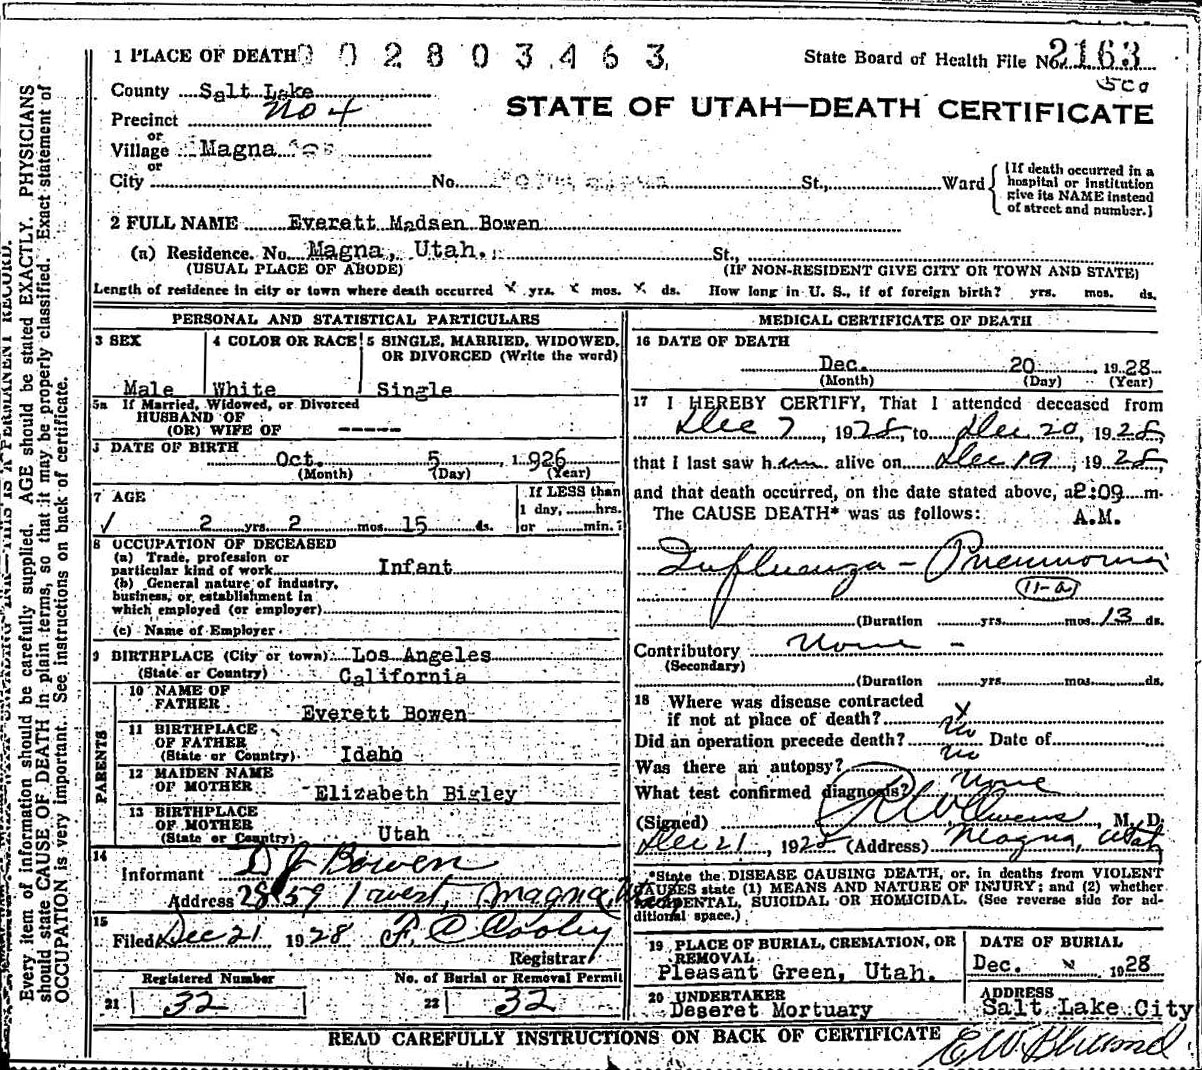 1 PLACE OF DEATH 002803463 State Board of Health File No. 2163
County Salt Lake
STATE OF UTAH—DEATH CERTIFICATE
Precinct No 4
or
Village Magna
or
City No. St., Ward
{If death occurred in a
hospital or institution
give its NAME instead
of street and number.}
2 FULL NAME Everett Madsen Bowen
(a) Residence. No. Magna, Utah. St.,
(USUAL PLACE OF ABODE) (IF NON-RESIDENT GIVE CITY OR TOWN AND STATE)
Length of residence in city or town where death occurred x yrs. x mos. x ds. How long in U. S., if of foreign birth? yrs. mos. ds.
PERSONAL AND STATISTICAL PARTICULARS
3 SEX
Male
4 COLOR OR RACE
White
5 SINGLE, MARRIED, WIDOWED,
OR DIVORCED (Write the word)
Single
5a If Married, Widowed, or Divorced
HUSBAND OF
(OR) WIFE OF -----
DATE OF BIRTH
Oct. 5, 1926
(Month) (Day) (Year)
7 AGE
2 yrs. 2 mos. 15 ds.
If LESS than
1 day, hrs.
or min.?
8 OCCUPATION OF DECEASED
(a) Trade, profession or
particular kind of work Infant
(b) General nature of industry,
business, or establishment in
which employed (or employer)
(c) Name of Employer
9 BIRTHPLACE (City or town) Los Angeles
(State or Country) California
PARENTS
10 NAME OF
FATHER
Everett Bowen
11 BIRTHPLACE
OF FATHER
(State or Country) Idaho
12 MAIDEN NAME
OF MOTHER Elizabeth Bigley
13 BIRTHPLACE
OF MOTHER
(State or Country) Utah
14
Informant D J Bowen
Address 2859 1 west, Magna,
15
Filed Dec 21 1928 F. C Cooley
Registrar
Registered Number No. of Burial or Removal Permit
21 32 22 32
MEDICAL CERTIFICATE OF DEATH
16 DATE OF DEATH
Dec. 20 1928
(Month) (Day) (Year)
17 I HEREBY CERTIFY, That I attended deceased from
Dec 7, 1928, to Dec 20, 1928,
that I last saw him alive on Dec 19, 1928
and that death occurred, on the date stated above, a 2:09 m.
The CAUSE DEATH* was as follows: A.M.
Influenza - Pneumonia
11-a
(Duration yrs. mos. 13 ds.
Contributory None -
(Secondary)
(Duration yrs. mos. ds.
18 Where was disease contracted
if not at place of death? x
Did an operation precede death? no Date of
Was there an autopsy? no
What test confirmed diagnosis? None
(Signed) Owens, M. D.
Dec 21, 1928 (Address) Magna, Utah
*State the DISEASE CAUSING DEATH, or, in deaths from VIOLENT
CAUSES state (1) MEANS AND NATURE OF INJURY; and (2) whether
ACCIDENTAL, SUICIDAL OR HOMICIDAL. (See reverse side for ad-
ditional space.)
19 PLACE OF BURIAL, CREMATION, OR
REMOVAL
Pleasant Green, Utah.
DATE OF BURIAL
Dec. x 1928
20 UNDERTAKER
Deseret Mortuary
ADDRESS
Salt Lake City
READ CAREFULLY INSTRUCTIONS ON BACK OF CERTIFICATE
THIS IS A PERMANENT RECORD.
Every item of information should be carefully supplied. AGE should be stated EXACTLY. PHYSICIANS
should state CAUSE OF DEATH in plain terms, so that it may be properly classified. Exact statement of
OCCUPATION is very important. See instructions on back of certificate.